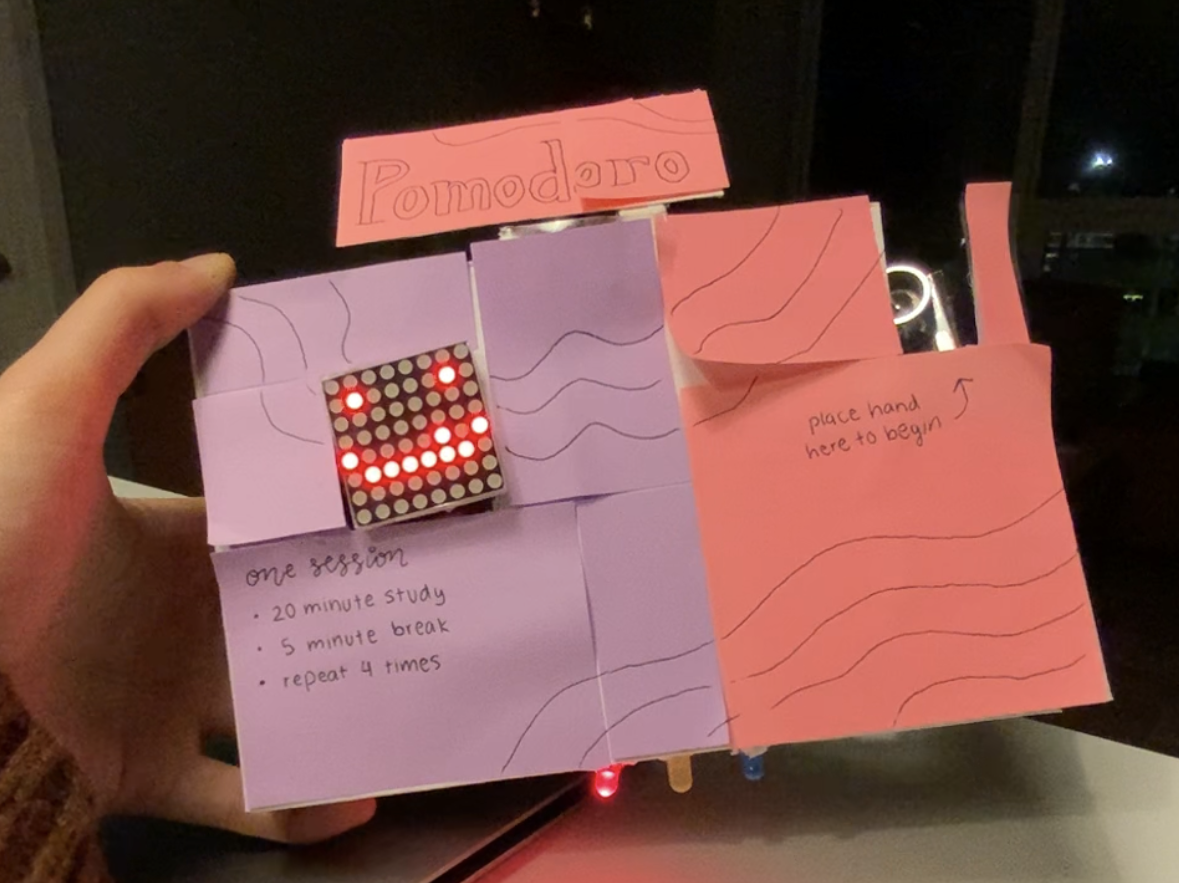 Pomodoro
place hand
here to begin
one session
• 20 minute study
• 5 minute break
• repeat 4 times